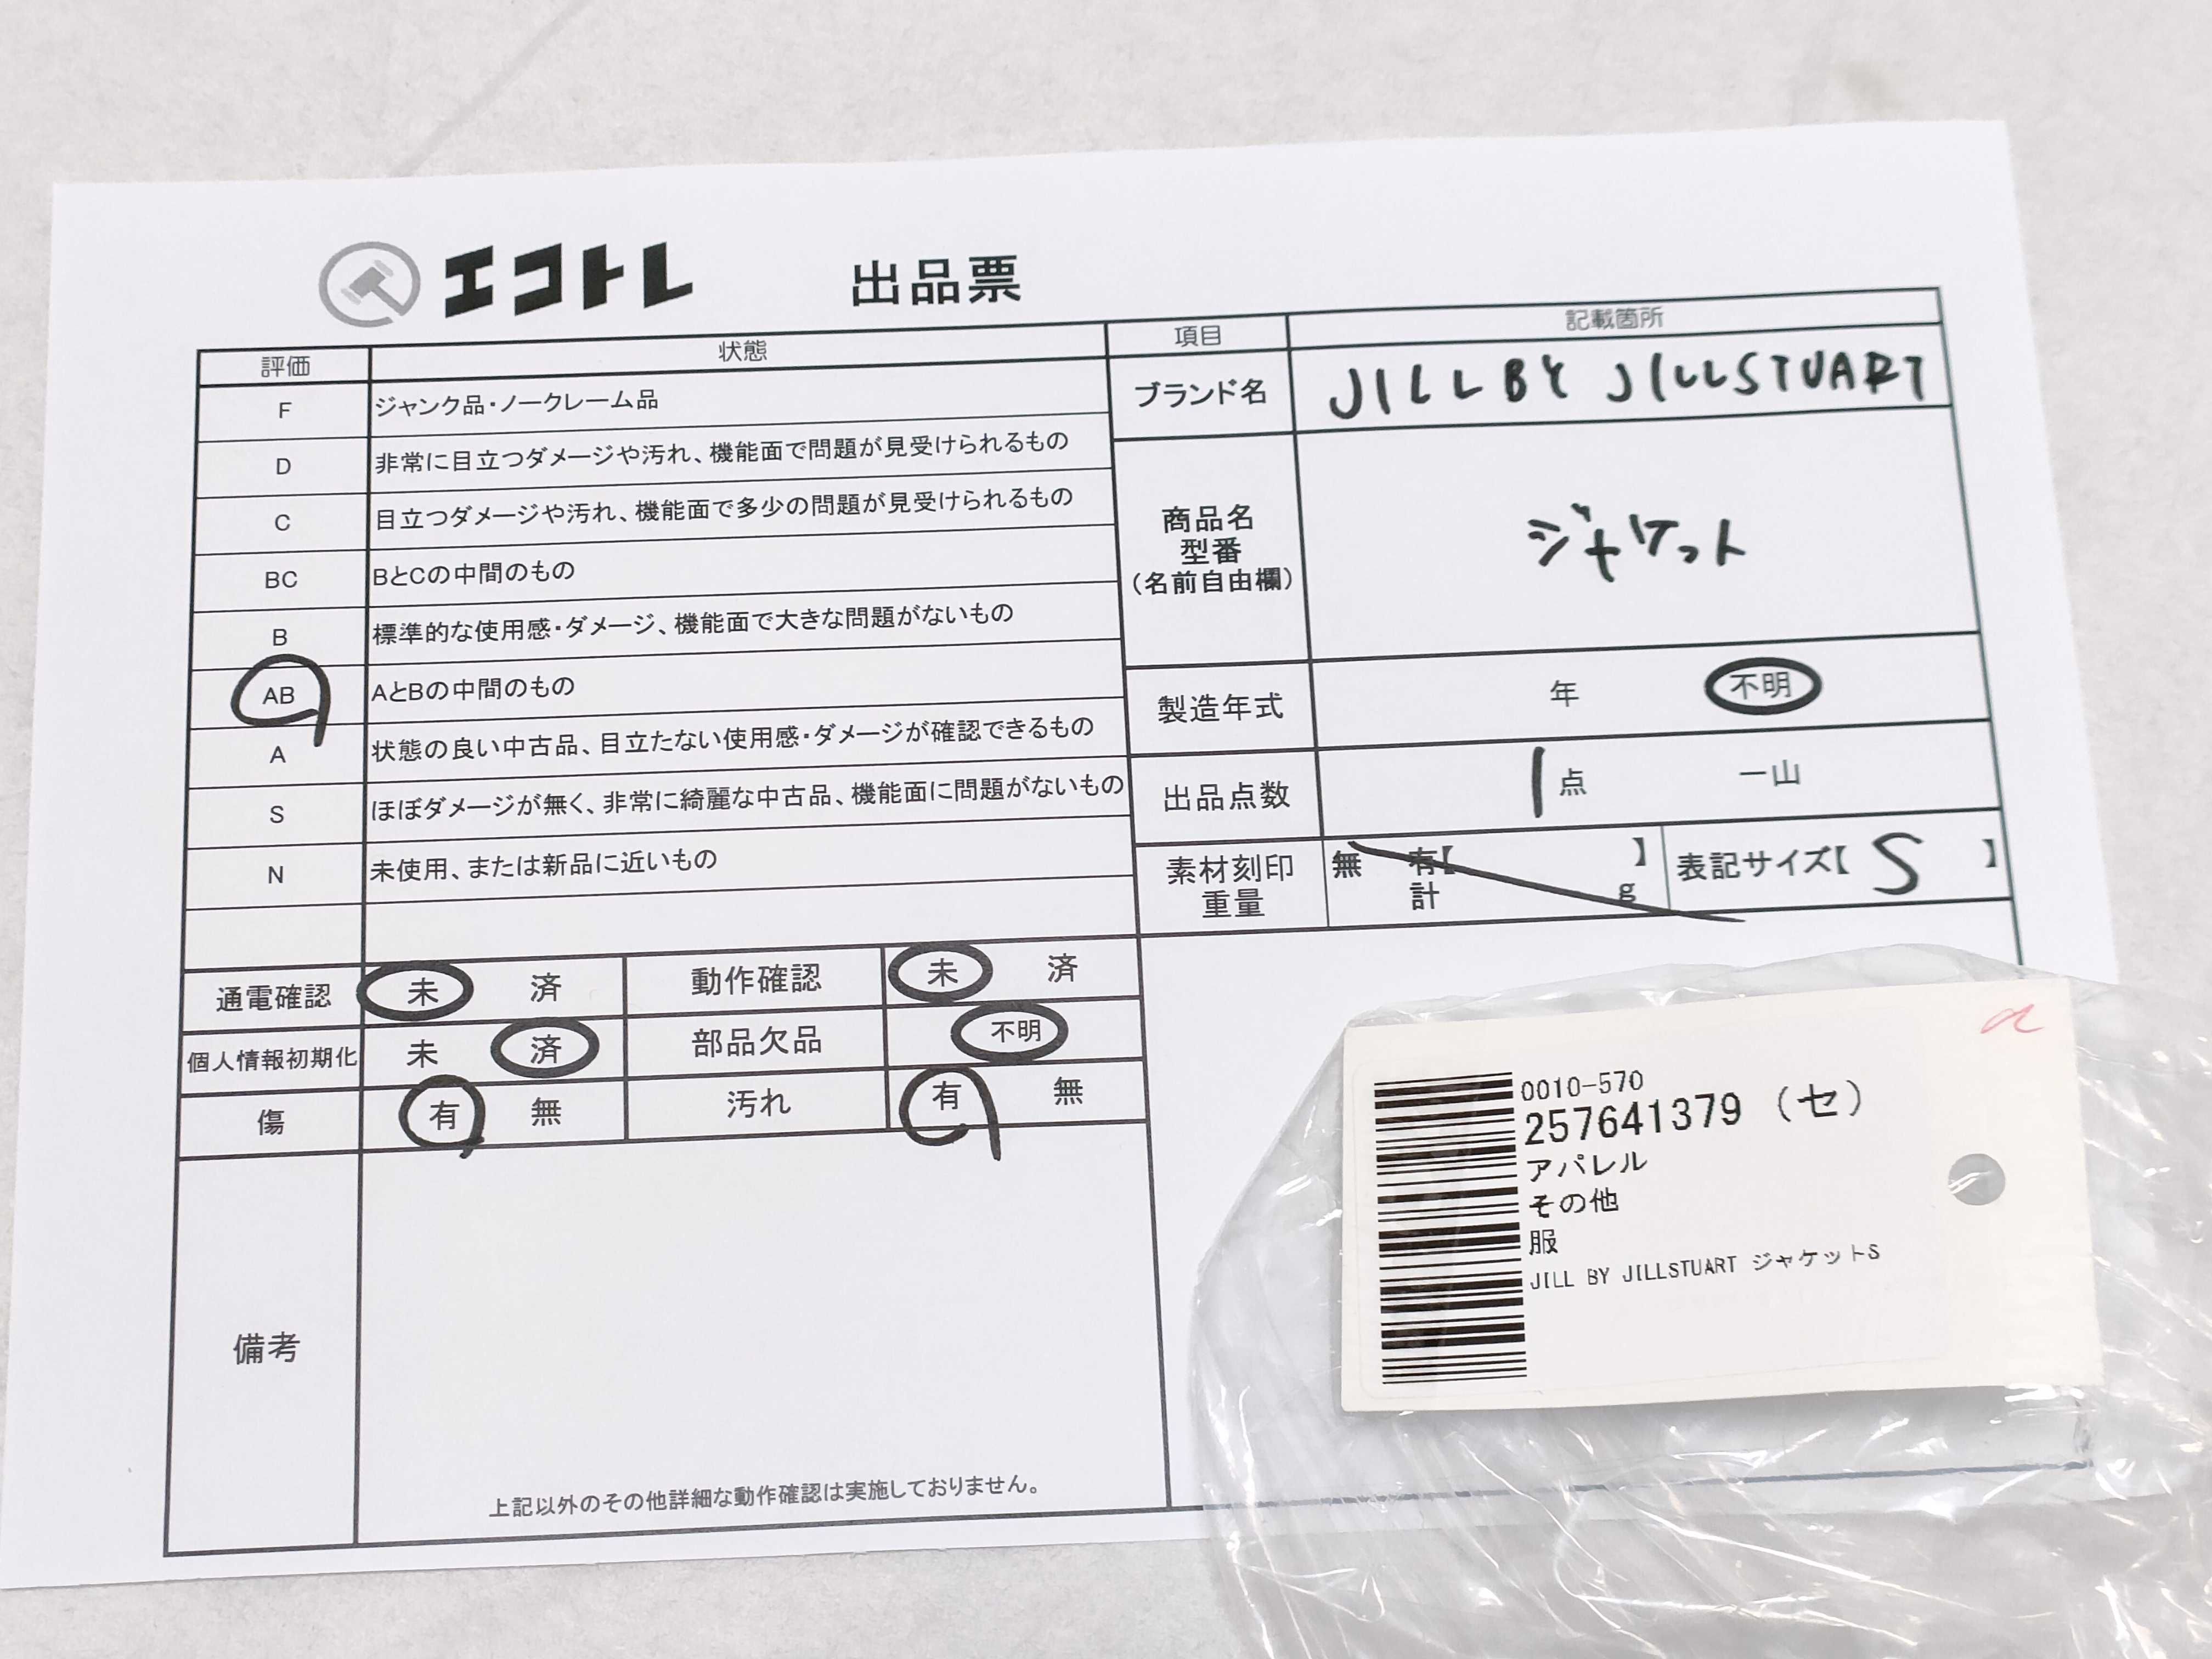 エコトレ 出品票
評価 状態
F ジャンク品・ノークレーム品
D 非常に目立つダメージや汚れ、機能面で問題が見受けられるもの
C 目立つダメージや汚れ、機能面で多少の問題が見受けられるもの
BC BとCの中間のもの
B 標準的な使用感・ダメージ、機能面で大きな問題がないもの
AB AとBの中間のもの
A 状態の良い中古品、目立たない使用感・ダメージが確認できるもの
S ほぼダメージが無く、非常に綺麗な中古品、機能面に問題がないもの
N 未使用、または新品に近いもの
項目 記載箇所
ブランド名 JILL BY JILLSTUART
商品名
型番
(名前自由欄)
ジャケット
製造年式 年 不明
出品点数 1点 一山
素材刻印 無 有【 】
重量 計 g
表記サイズ【 S 】
通電確認 未 済 動作確認 未 済
個人情報初期化 未 済 部品欠品 不明
傷 有 無 汚れ 有 無
備考
上記以外のその他詳細な動作確認は実施しておりません。
0010-570
257641379 (セ)
アパレル
その他
服
JILL BY JILLSTUART ジャケットS